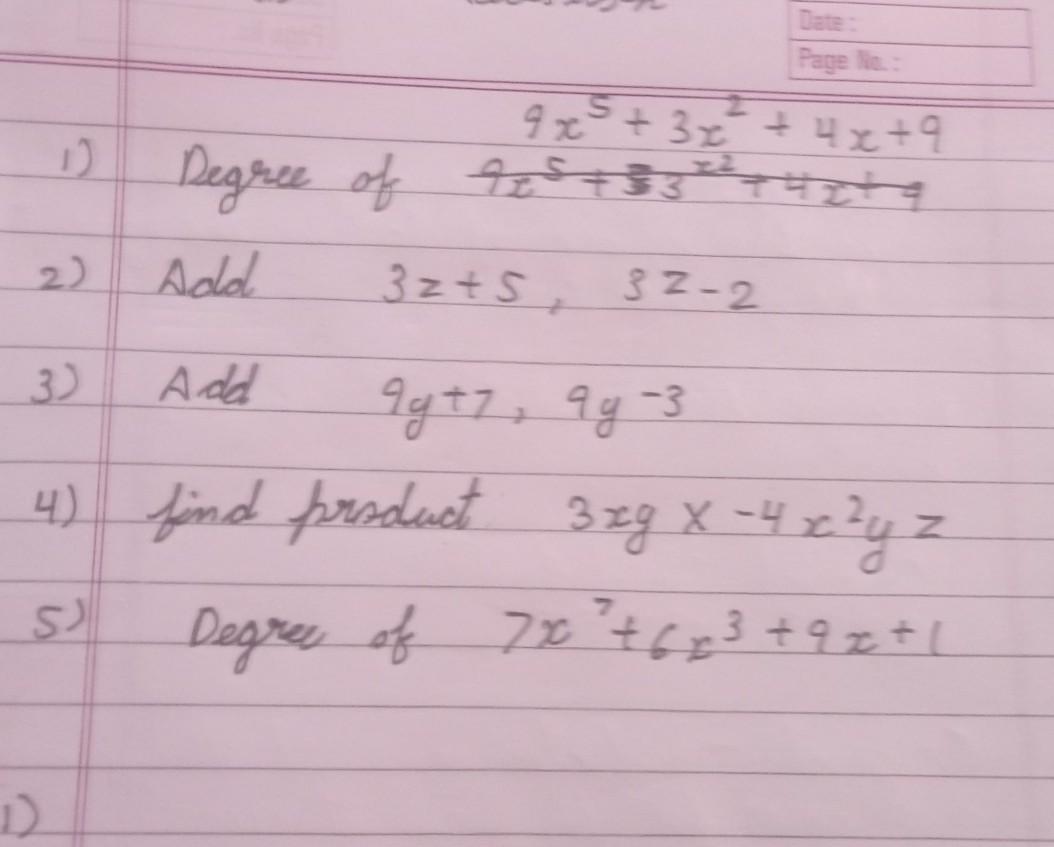 Date :
Page No. :
9x⁵ + 3x² + 4x + 9
1) Degree of 9x⁵ + 3 3x² + 4x + 9
2) Add 3z + 5 , 3z - 2
3) Add 9y + 7 , 9y - 3
4) find product 3xy × -4x²yz
5) Degree of 7x⁷ + 6x³ + 9x + 1
1)